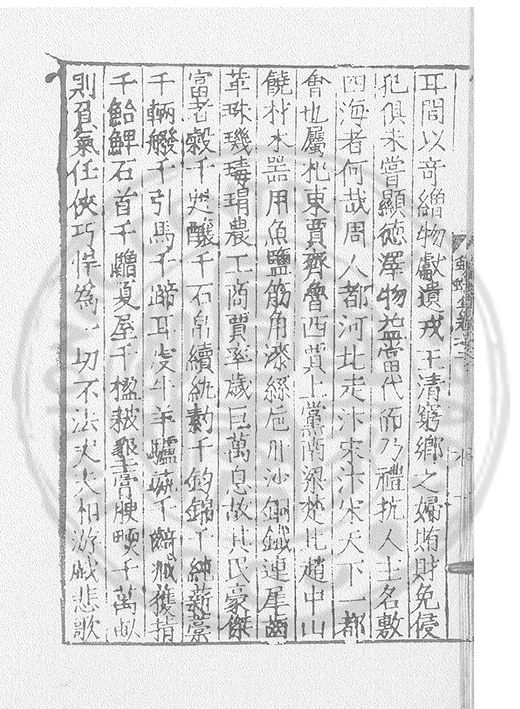 耳間以奇繒物獻遺戎王清窮鄉之婦賄財免侵
犯俱未嘗顯德澤物益當代而乃禮抗人主名敷
四海者何哉周人都河北走汴宋汴宋天下一都
會也屬北東賈齊魯西賈上黨南梁楚北趙中山
饒材木器用魚鹽筋角漆絲卮丹沙銅鐵連犀齒
革珠璣瑇瑁農工商賈率歲巨萬息故其民豪傑
富者穀千 釀千石帛續絁 千鈞錦千純薪藁
千輛 千引馬千蹄耳 牛羊驢 千 臧獲指
千鮐鯉石首千 夏屋千楹栽 膏腴 千萬畝
則負氣任俠巧悍為一切不法丈夫相游戲悲歌